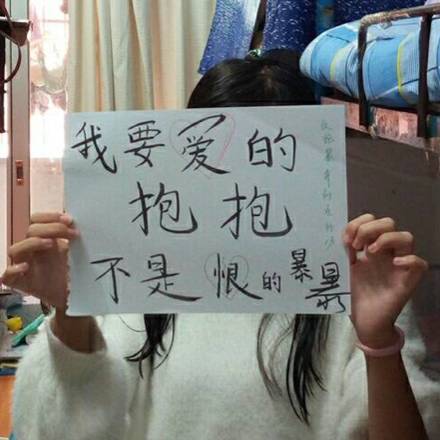 我要爱的
抱抱
不是恨的暴暴